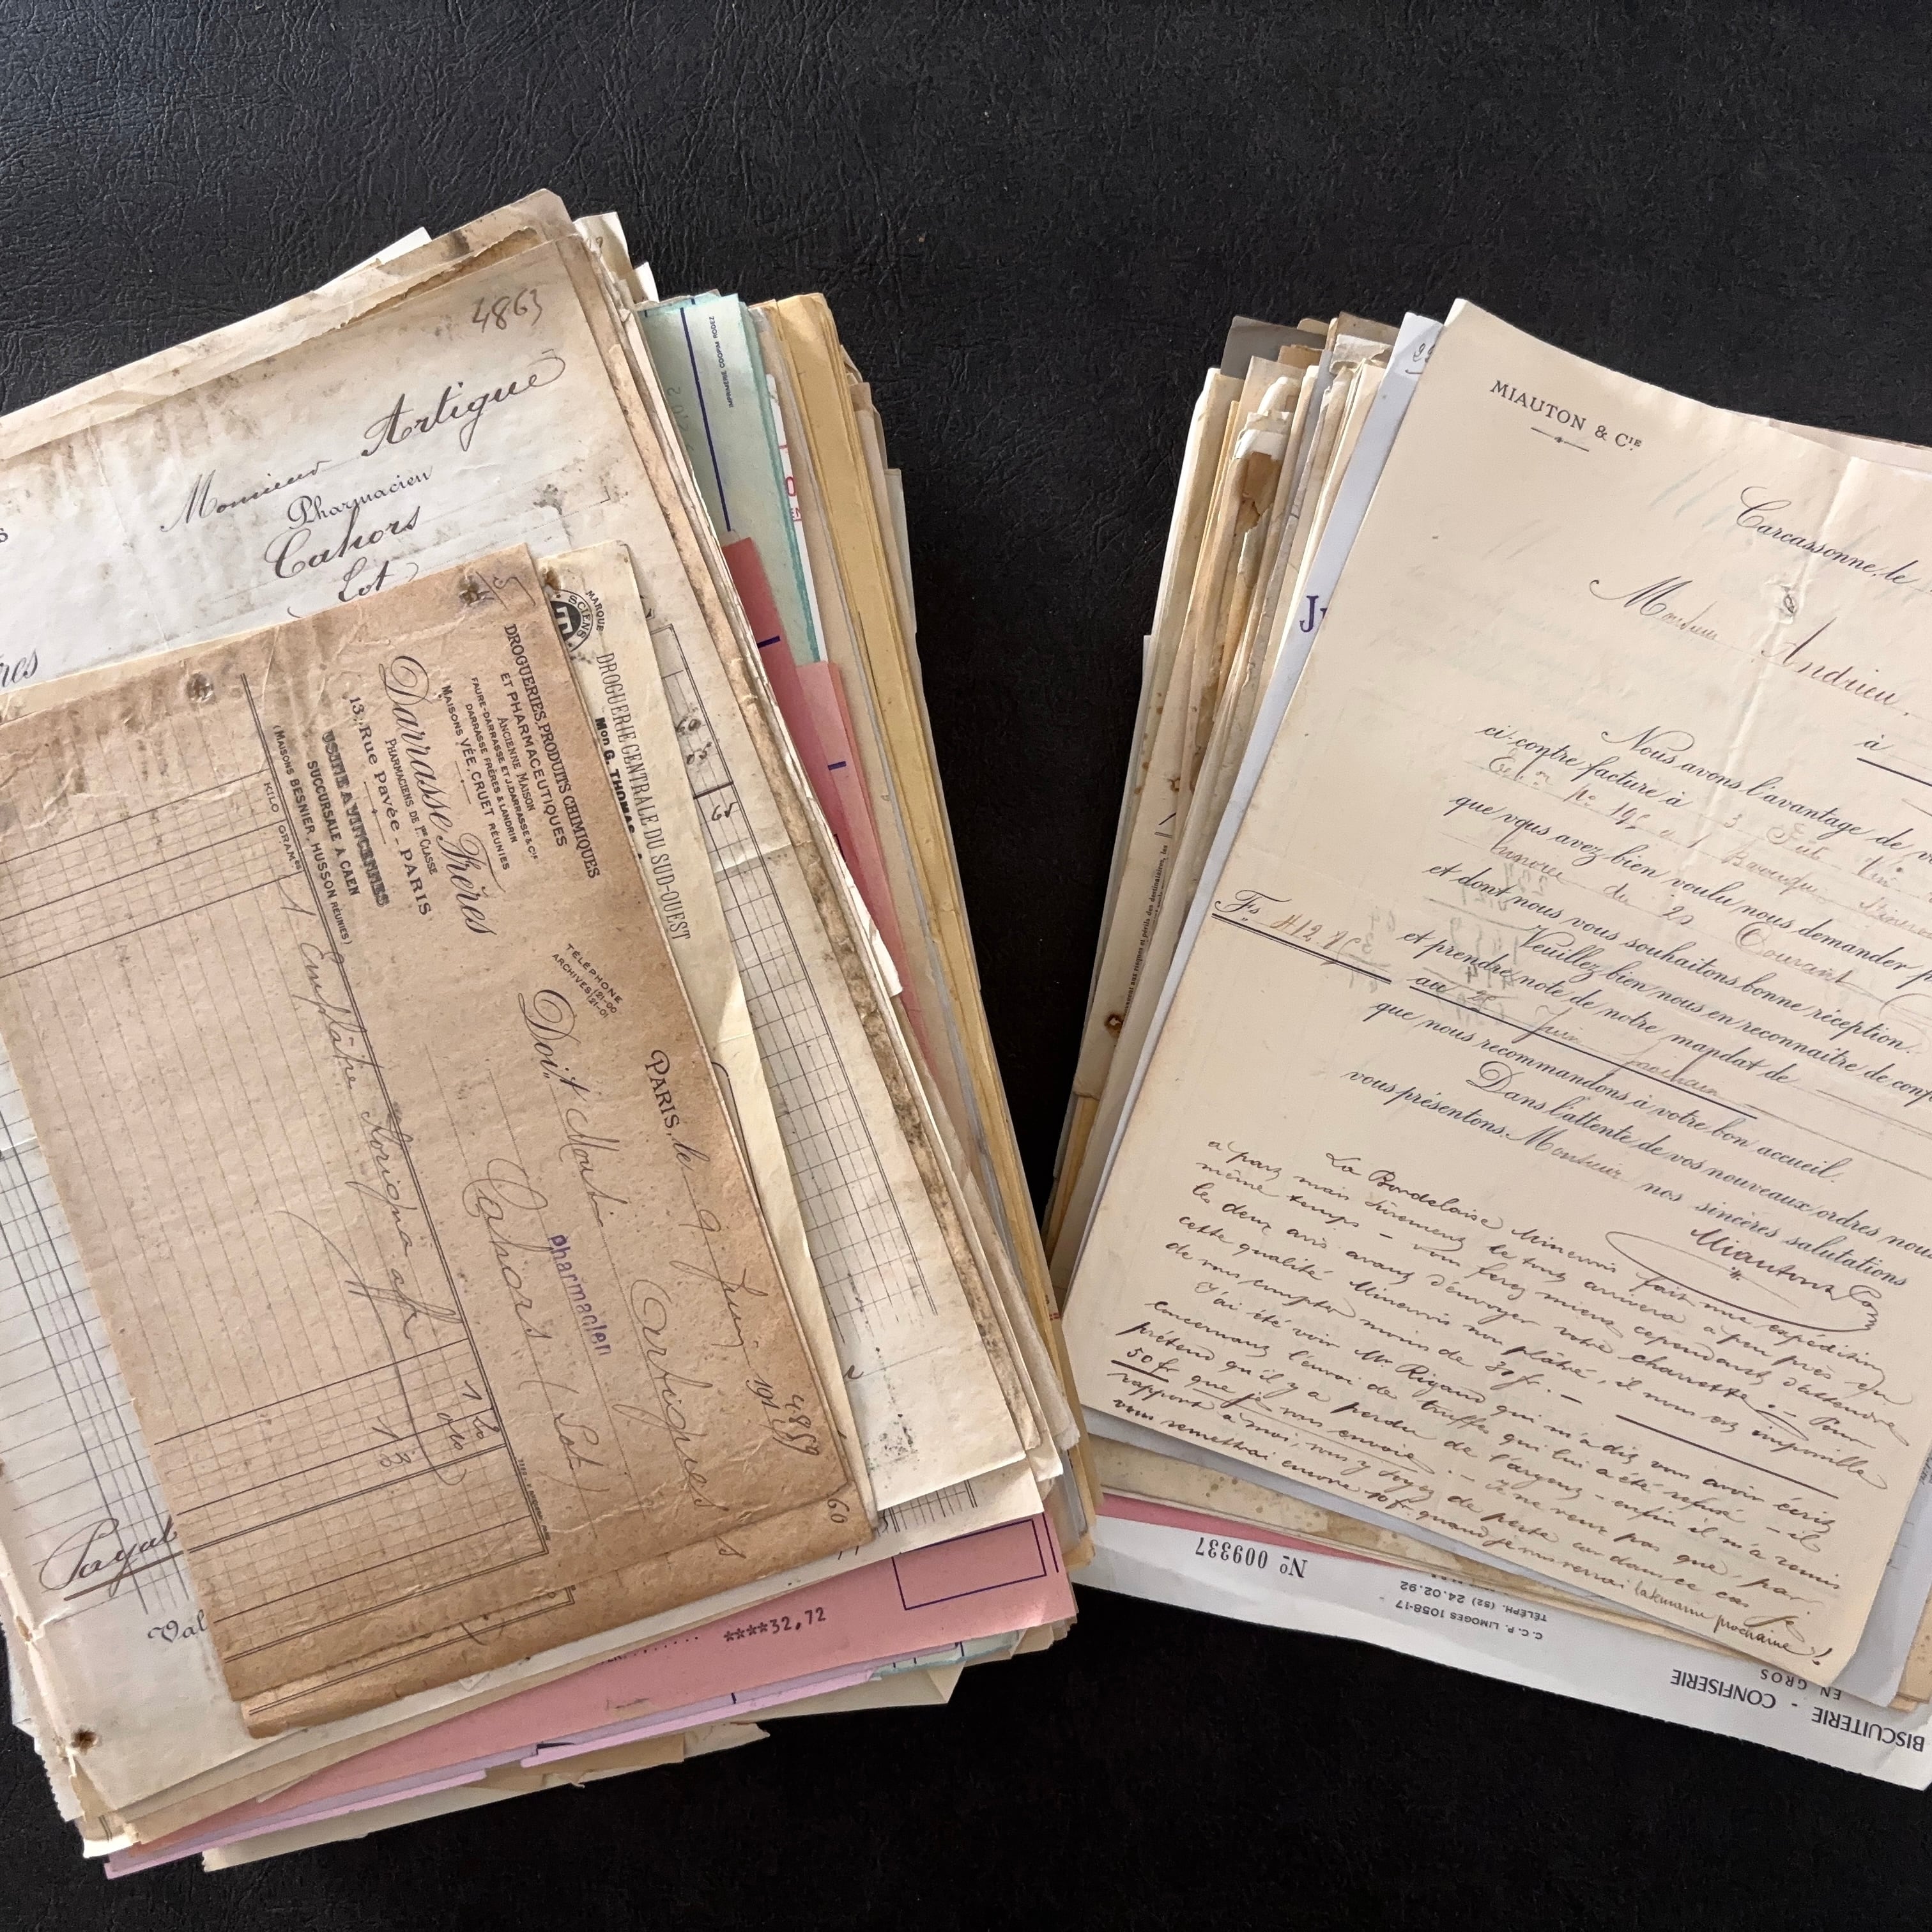 4863
Monsieur Artigue
Pharmacien
Cahors
Lot
MARQUE
DROGUERIE CENTRALE DU SUD-OUEST
Mon G. THOMAS
65
DROGUERIES, PRODUITS CHIMIQUES
ET PHARMACEUTIQUES
ANCIENNE MAISON
FAURE-DARRASSE ET J. DARRASSE & Cie
DARRASSE FRÈRES & LANDRIN
MAISONS VÉE, CRUET RÉUNIES
Darrasse Frères
PHARMACIENS DE 1re CLASSE
13, Rue Pavée - PARIS
USINE A VINCENNES
SUCCURSALE A CAEN
(MAISONS BESNIER, HUSSON RÉUNIES)
KILO GRAMes
TÉLÉPHONE
ARCHIVES
PARIS, le 9 Juin 191
4859
Doit
Artigues
pharmacien
Cahors (Lot)
1 Emplâtre
60
Payab
Val
****32,72
IMPRIMERIE COOPIM RODEZ
MIAUTON & CIE
Carcassonne, le
Monsieur Andrieu,
à
Nous avons l'avantage de v
ci contre facture à 3
que vous avez bien voulu nous demander p
du 21 Courant
et dont nous vous souhaitons bonne réception.
Veuillez bien nous en reconnaître de conf
et prendre note de notre mandat de
Fs
au Juin prochain
que nous recommandons à votre bon accueil.
Dans l'attente de vos nouveaux ordres nous
vous présentons, Monsieur nos sincères salutations
Miauton & Co
La Bordelaise Minervois fait une expédition
à part mais sûrement le tout arrivera à peu près en
même temps - vous ferez mieux cependant d'attendre
les deux avis avant d'envoyer votre charrette. - Pour
cette qualité Minervois non plâtré, il nous est impossible
de vous compter moins de 31 fr. -
J'ai été voir Mr Rigaud qui m'a dit vous avoir écrit
concernant l'envoi de truffes qui lui a été refusé - il
prétend qu'il y a perdu de l'argent - enfin il m'a remis
50 fr que je vous envoie. - Je ne veux pas que, par
rapport à moi, vous y soyez de perte car dans ce cas je
vous remettrai encore 10 fr. quand je vous verrai la semaine prochaine!
No 009337
C.C.P. LIMOGES 1058-17
TÉLÉPH. (52) 24.02.92
EN GROS
BISCUITERIE - CONFISERIE